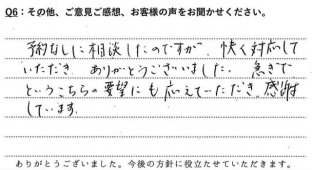 Q6：その他、ご意見ご感想、お客様の声をお聞かせください。
予約なしに相談したのですが、快く対応して
いただき、ありがとうございました。急ぎで
というこちらの要望にも応えていただき、感謝
しています。
ありがとうございました。今後の方針に役立たせていただきます。